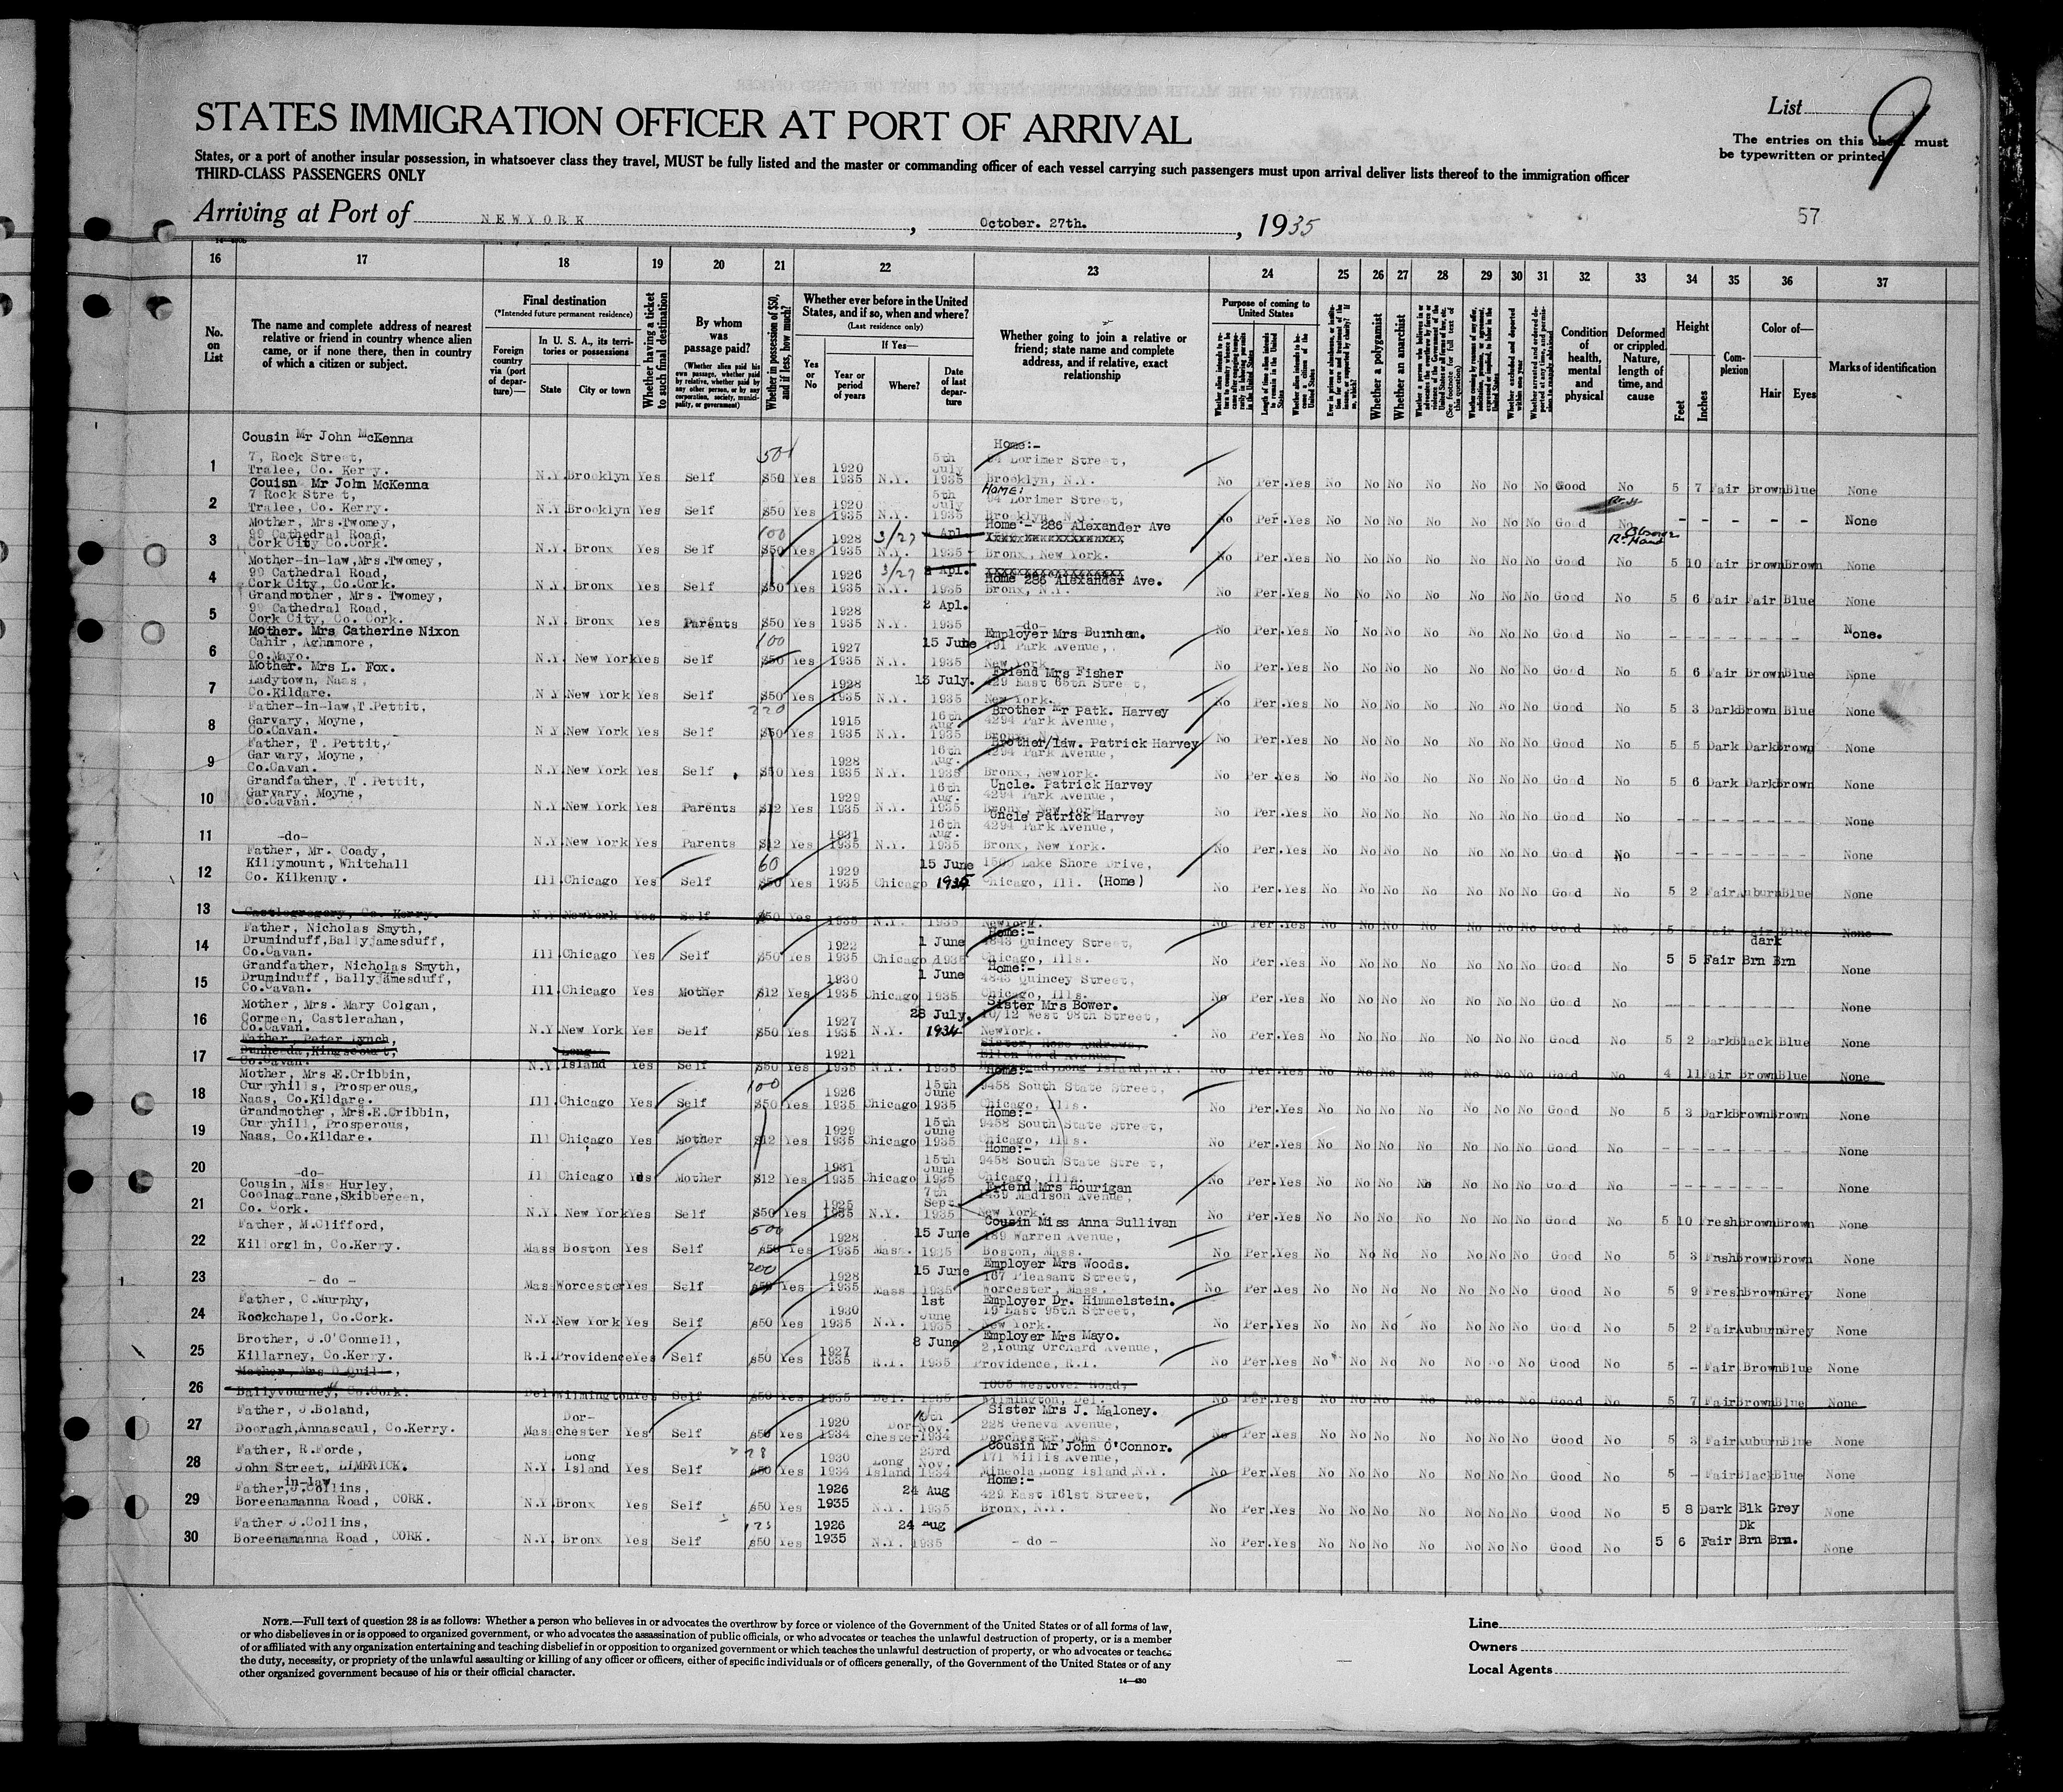 STATES IMMIGRATION OFFICER AT PORT OF ARRIVAL
List 9
The entries on this sheet must
be typewritten or printed
States, or a port of another insular possession, in whatsoever class they travel, MUST be fully listed and the master or commanding officer of each vessel carrying such passengers must upon arrival deliver lists thereof to the immigration officer
THIRD-CLASS PASSENGERS ONLY
Arriving at Port of NEWYORK, October. 27th., 1935
57
16 17 18 19 20 21 22 23 24 25 26 27 28 29 30 31 32 33 34 35 36 37
No. on List
The name and complete address of nearest relative or friend in country whence alien came, or if none there, then in country of which a citizen or subject.
Final destination
(*Intended future permanent residence)
Foreign country via (port of departure)—
In U. S. A., its territories or possessions
State
City or town
Whether having a ticket to such final destination
By whom was passage paid?
(Whether alien paid his own passage, whether paid by relative, whether paid by any other person, or by any corporation, society, municipality, or government)
Whether in possession of $50, and if less, how much?
Whether ever before in the United States, and if so, when and where?
(Last residence only)
Yes or No
If Yes—
Year or period of years
Where?
Date of last departure
Whether going to join a relative or friend; state name and complete address, and if relative, exact relationship
Purpose of coming to United States
Whether a polygamist
Whether an anarchist
Condition of health, mental and physical
Deformed or crippled. Nature, length of time, and cause
Height
Feet
Inches
Complexion
Color of—
Hair
Eyes
Marks of identification
Cousin Mr John McKenna
7, Rock Street,
Tralee, Co. Kerry.
1 N.Y. Brooklyn Yes Self $50 50 Yes 1920 1935 N.Y. 5th July 1935 Home:- 94 Lorimer Street, Brooklyn, N.Y. No Per. Yes No No No No No No No Good No 5 7 Fair Brown Blue None
Couisn Mr John McKenna
7 Rock Street,
Tralee, Co. Kerry.
2 N.Y. Brooklyn Yes Self $50 Yes 1920 1935 N.Y. 5th July 1935 HOME: 94 Lorimer Street, Brooklyn, N.Y. No Per. Yes No No No No No No No Good No - - - - - None
Mother, Mrs.Twomey,
99 Cathedral Road,
Cork City Co.Cork.
3 N.Y. Bronx Yes Self 100 $50 Yes 1928 1935 3/27 N.Y. Apl. 1935 Home:- 286 Alexander Ave Bronx, New York. No Per. Yes No No No No No No No Good R. Hand 5 10 Fair Brown Brown None
Mother-in-law, Mrs.Twomey,
99 Cathedral Road,
Cork City, Co.Cork.
4 N.Y. Bronx Yes Self $50 Yes 1926 1935 3/27 N.Y. 2 Apl. 1935 Home 286 Alexander Ave. Bronx, N.Y. No Per. Yes No No No No No No No Good No 5 6 Fair Fair Blue None
Grandmother, Mrs. Twomey,
99 Cathedral Road,
Cork City, Co. Cork.
5 N.Y. Bronx Yes Parents $50 Yes 1928 1935 N.Y. 2 Apl. 1935 -do- No Per. Yes No No No No No No No Good No - - - - - None.
Mother. Mrs Catherine Nixon
Cahir, Aghamore,
Co.Mayo.
6 N.Y. New York Yes Self 100 $50 Yes 1927 1935 N.Y. 15 June 1935 Employer Mrs Burnham. 791 Park Avenue, New York No Per. Yes No No No No No No No Good No 5 6 Fair Brown Blue None
Mother. Mrs L. Fox.
Ladytown, Naas,
Co.Kildare.
7 N.Y. New York Yes Self $50 Yes 1928 1935 N.Y. 13 July. 1935 Friend Mrs Fisher 429 East 65th Street, New York. No Per. Yes No No No No No No No Good No 5 3 Dark Brown Blue None
Father-in-law, T.Pettit,
Garvary, Moyne,
Co.Cavan.
8 N.Y. New York Yes Self 220 $50 Yes 1915 1935 N.Y. 16th Aug. 1935 Brother Mr Patk. Harvey 4294 Park Avenue, Bronx, New York. No Per. Yes No No No No No No No Good No 5 5 Dark Dark Brown None
Father, T. Pettit,
Garvary, Moyne,
Co.Cavan.
9 N.Y. New York Yes Self $50 Yes 1928 1935 N.Y. 16th Aug. 1935 Brother/law. Patrick Harvey 4294 Park Avenue, Bronx, NewYork. No Per. Yes No No No No No No No Good No 5 6 Dark Dark Brown None
Grandfather, T. Pettit,
Garvary, Moyne,
Co.Cavan.
10 N.Y. New York Yes Parents $12 Yes 1929 1935 N.Y. 16th Aug. 1935 Uncle. Patrick Harvey 4294 Park Avenue, Bronx, New York. No Per. Yes No No No No No No No Good No - - - - - None
11 -do- N.Y. New York Yes Parents $12 Yes 1931 1935 N.Y. 16th Aug. 1935 Uncle Patrick Harvey 4294 Park Avenue, Bronx, New York. No Per. Yes No No No No No No No Good No - - - - - None
Father, Mr. Coady,
Killymount, Whitehall
Co. Kilkenny.
12 Ill. Chicago Yes Self 60 $50 Yes 1929 1935 Chicago 15 June 1935 1500 Lake Shore Drive, Chicago, Ill. (Home) No Per. Yes No No No No No No No Good No 5 2 Fair Auburn Blue None
13 Castlegregory, Co. Kerry. N.Y. NewYork Yes Self $50 Yes 1935 N.Y. 1935 NewYork. No Per. Yes No No No No No No No Good No 5 Fair Fair Blue None
Father, Nicholas Smyth,
Druminduff, Ballyjamesduff,
Co.Cavan.
14 Ill. Chicago Yes Self $50 Yes 1922 1935 Chicago 1 June 1935 Home:- 4843 Quincey Street, Chicago, Ills. No Per. Yes No No No No No No No Good No 5 5 Fair dark Brn Brn None
Grandfather, Nicholas Smyth,
Druminduff, Ballyjamesduff,
Co.Cavan.
15 Ill. Chicago Yes Mother $12 Yes 1930 1935 Chicago 1 June 1935 Home:- 4843 Quincey Street, Chicago, Ills. No Per. Yes No No No No No No No Good No - - - - - None
Mother, Mrs. Mary Colgan,
Cormeen, Castlerahan,
Co.Cavan.
16 N.Y. New York Yes Self $50 Yes 1927 1935 N.Y. 28 July, 1934 Sister Mrs Bower. 10/12 West 98th Street, NewYork. No Per. Yes No No No No No No No Good No 5 2 Dark Black Blue None
Father, Peter Lynch,
Dunheeda, Kingscourt,
Co.Cavan.
17 N.Y. Long Island Yes Self $50 Yes 1921 1935 N.Y. 1935 Sister, Rose Andrews, Ellen Ward Avenue, Long Island, N.Y. No Per. Yes No No No No No No No Good No 4 11 Fair Brown Blue None
Mother, Mrs.E.Cribbin,
Curryhills, Prosperous,
Naas, Co.Kildare.
18 Ill. Chicago Yes Self 100 $50 Yes 1926 1935 Chicago 15th June 1935 Home:- 9458 South State Street, Chicago, Ills. No Per. Yes No No No No No No No Good No 5 3 Dark Brown Brown None
Grandmother, Mrs.E.Cribbin,
Curryhill, Prosperous,
Naas, Co.Kildare.
19 Ill Chicago Yes Mother $12 Yes 1929 1935 Chicago 15th June 1935 Home:- 9458 South State Street, Chicago, Ills. No Per. Yes No No No No No No No Good No - - - - - None
20 -do- Ill Chicago Yes Mother $12 Yes 1931 1935 Chicago 15th June 1935 Home:- 9458 South State Street, Chicago, Ills. No Per. Yes No No No No No No No Good No - - - - - None
Cousin, Miss Hurley,
Coolnagarane, Skibbereen,
Co. Cork.
21 N.Y. New York Yes Self $50 Yes 1925 1935 N.Y. 7th Sept. 1935 Friend Mrs Hourigan 1439 Madison Avenue, New York. No Per. Yes No No No No No No No Good No 5 10 Fresh Brown Brown None
Father, M.Clifford,
Killorglin, Co.Kerry.
22 Mass Boston Yes Self 500 $50 Yes 1928 1935 Mass. 15 June 1935 Cousin Miss Anna Sullivan 189 Warren Avenue, Boston, Mass. No Per. Yes No No No No No No No Good No 5 3 Frsh Brown Brown None
23 - do - Mass Worcester Yes Self 200 $50 Yes 1928 1935 Mass 15 June 1935 Employer Mrs Woods. 167 Pleasant Street, Worcester, Mass. No Per. Yes No No No No No No No Good No 5 9 Fresh Brown Grey None
Father, C.Murphy,
Rockchapel, Co.Cork.
24 N.Y. New York Yes Self $50 Yes 1930 1935 N.Y. 1st June 1935 Employer Dr. Himmelstein. 19 East 95th Street, New York. No Per. Yes No No No No No No No Good No 5 2 Fair Auburn Grey None
Brother, J.O'Connell,
Killarney, Co.Kerry.
25 R.I. Providence Yes Self $50 Yes 1927 1935 R.I. 8 June 1935 Employer Mrs Mayo. 2, Young Orchard Avenue, Providence, R.I. No Per. Yes No No No No No No No Good No 5 - Fair Brown Blue None
Mother, Mrs D.Quill,
Ballyvourney, Co.Cork.
26 Del Wilmington Yes Self $50 Yes 1935 Del. 1935 1005 Westover Road, Wilmington, Del. No Per. Yes No No No No No No No Good No 5 7 Fair Brown Blue None
Father, J.Boland,
Dooragh, Annascaul, Co.Kerry.
27 Mass Dorchester Yes Self $50 Yes 1920 1934 Dorchester 10th Nov. 1934 Sister Mrs J. Maloney. 228 Geneva Avenue, Dorchester, Mass. No Per. Yes No No No No No No No Good No 5 3 Fair Auburn Blue None
Father, R.Forde,
John Street, LIMERICK.
28 N.Y. Long Island Yes Self 28 $50 Yes 1930 1934 Long Island 23rd Nov. 1934 Cousin Mr John O'Connor. 171 Willis Avenue, Mineola, Long Island, N.Y. No Per. Yes No No No No No No No Good No 5 - Fair Black Blue None
in-law
Father, J.Collins,
Boreenamanna Road, CORK.
29 N.Y. Bronx Yes Self $50 Yes 1926 1935 N.Y. 24 Aug 1935 Home:- 429 East 161st Street, Bronx, N.Y. No Per. Yes No No No No No No No Good No 5 8 Dark Blk Grey None
Father J.Collins,
Boreenamanna Road, CORK.
30 N.Y. Bronx Yes Self 125 $50 Yes 1926 1935 N.Y. 24 Aug 1935 - do - No Per. Yes No No No No No No No Good No 5 6 Fair Dk Brn Brn. None
NOTE.—Full text of question 28 is as follows: Whether a person who believes in or advocates the overthrow by force or violence of the Government of the United States or of all forms of law,
or who disbelieves in or is opposed to organized government, or who advocates the assassination of public officials, or who advocates or teaches the unlawful destruction of property, or is a member
of or affiliated with any organization entertaining and teaching disbelief in or opposition to organized government or which teaches the unlawful destruction of property, or who advocates or teaches
the duty, necessity, or propriety of the unlawful assaulting or killing of any officer or officers, either of specific individuals or of officers generally, of the Government of the United States or of any
other organized government because of his or their official character.
14—430
Line
Owners
Local Agents